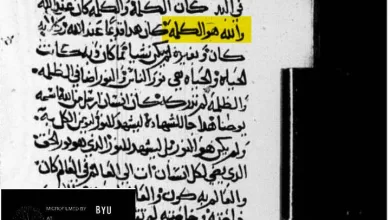 في البد كان الكلمه والكلمه كان عند الله
والله هو الكلمه كان هدا قديما عند الله وكل به
كان وبغيره لم يكن شيا مما كان وبه كانت
الحياه والحياه هي نور الناس والنور اضا في الظلمه
والظلمه لم تدركه كان انسان ارسل من الله اسمه
يوحنا هدا جا للشهاده ليشهد للنور ليومن الكل به
ولم يكن هو النور بل ليشهد للنور الدي هو نور الحق
الدي يضي لكل انسان ات الى العالم في العالم كان
والعالم به كون والعالم
MICROFILMED BY
BYU
AT